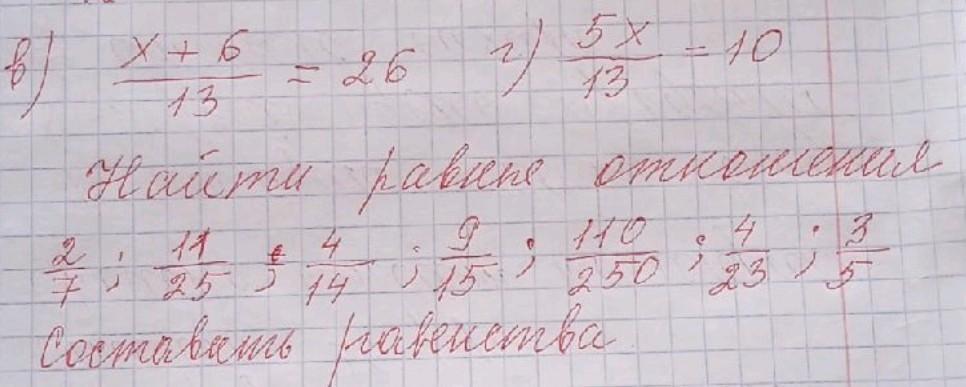 в) (x + 6)/13 = 26 г) 5x/13 = 10
Найти равные отношения
2/7 ; 11/25 ; 4/14 ; 9/15 ; 110/250 ; 4/23 ; 3/5
Составить равенства